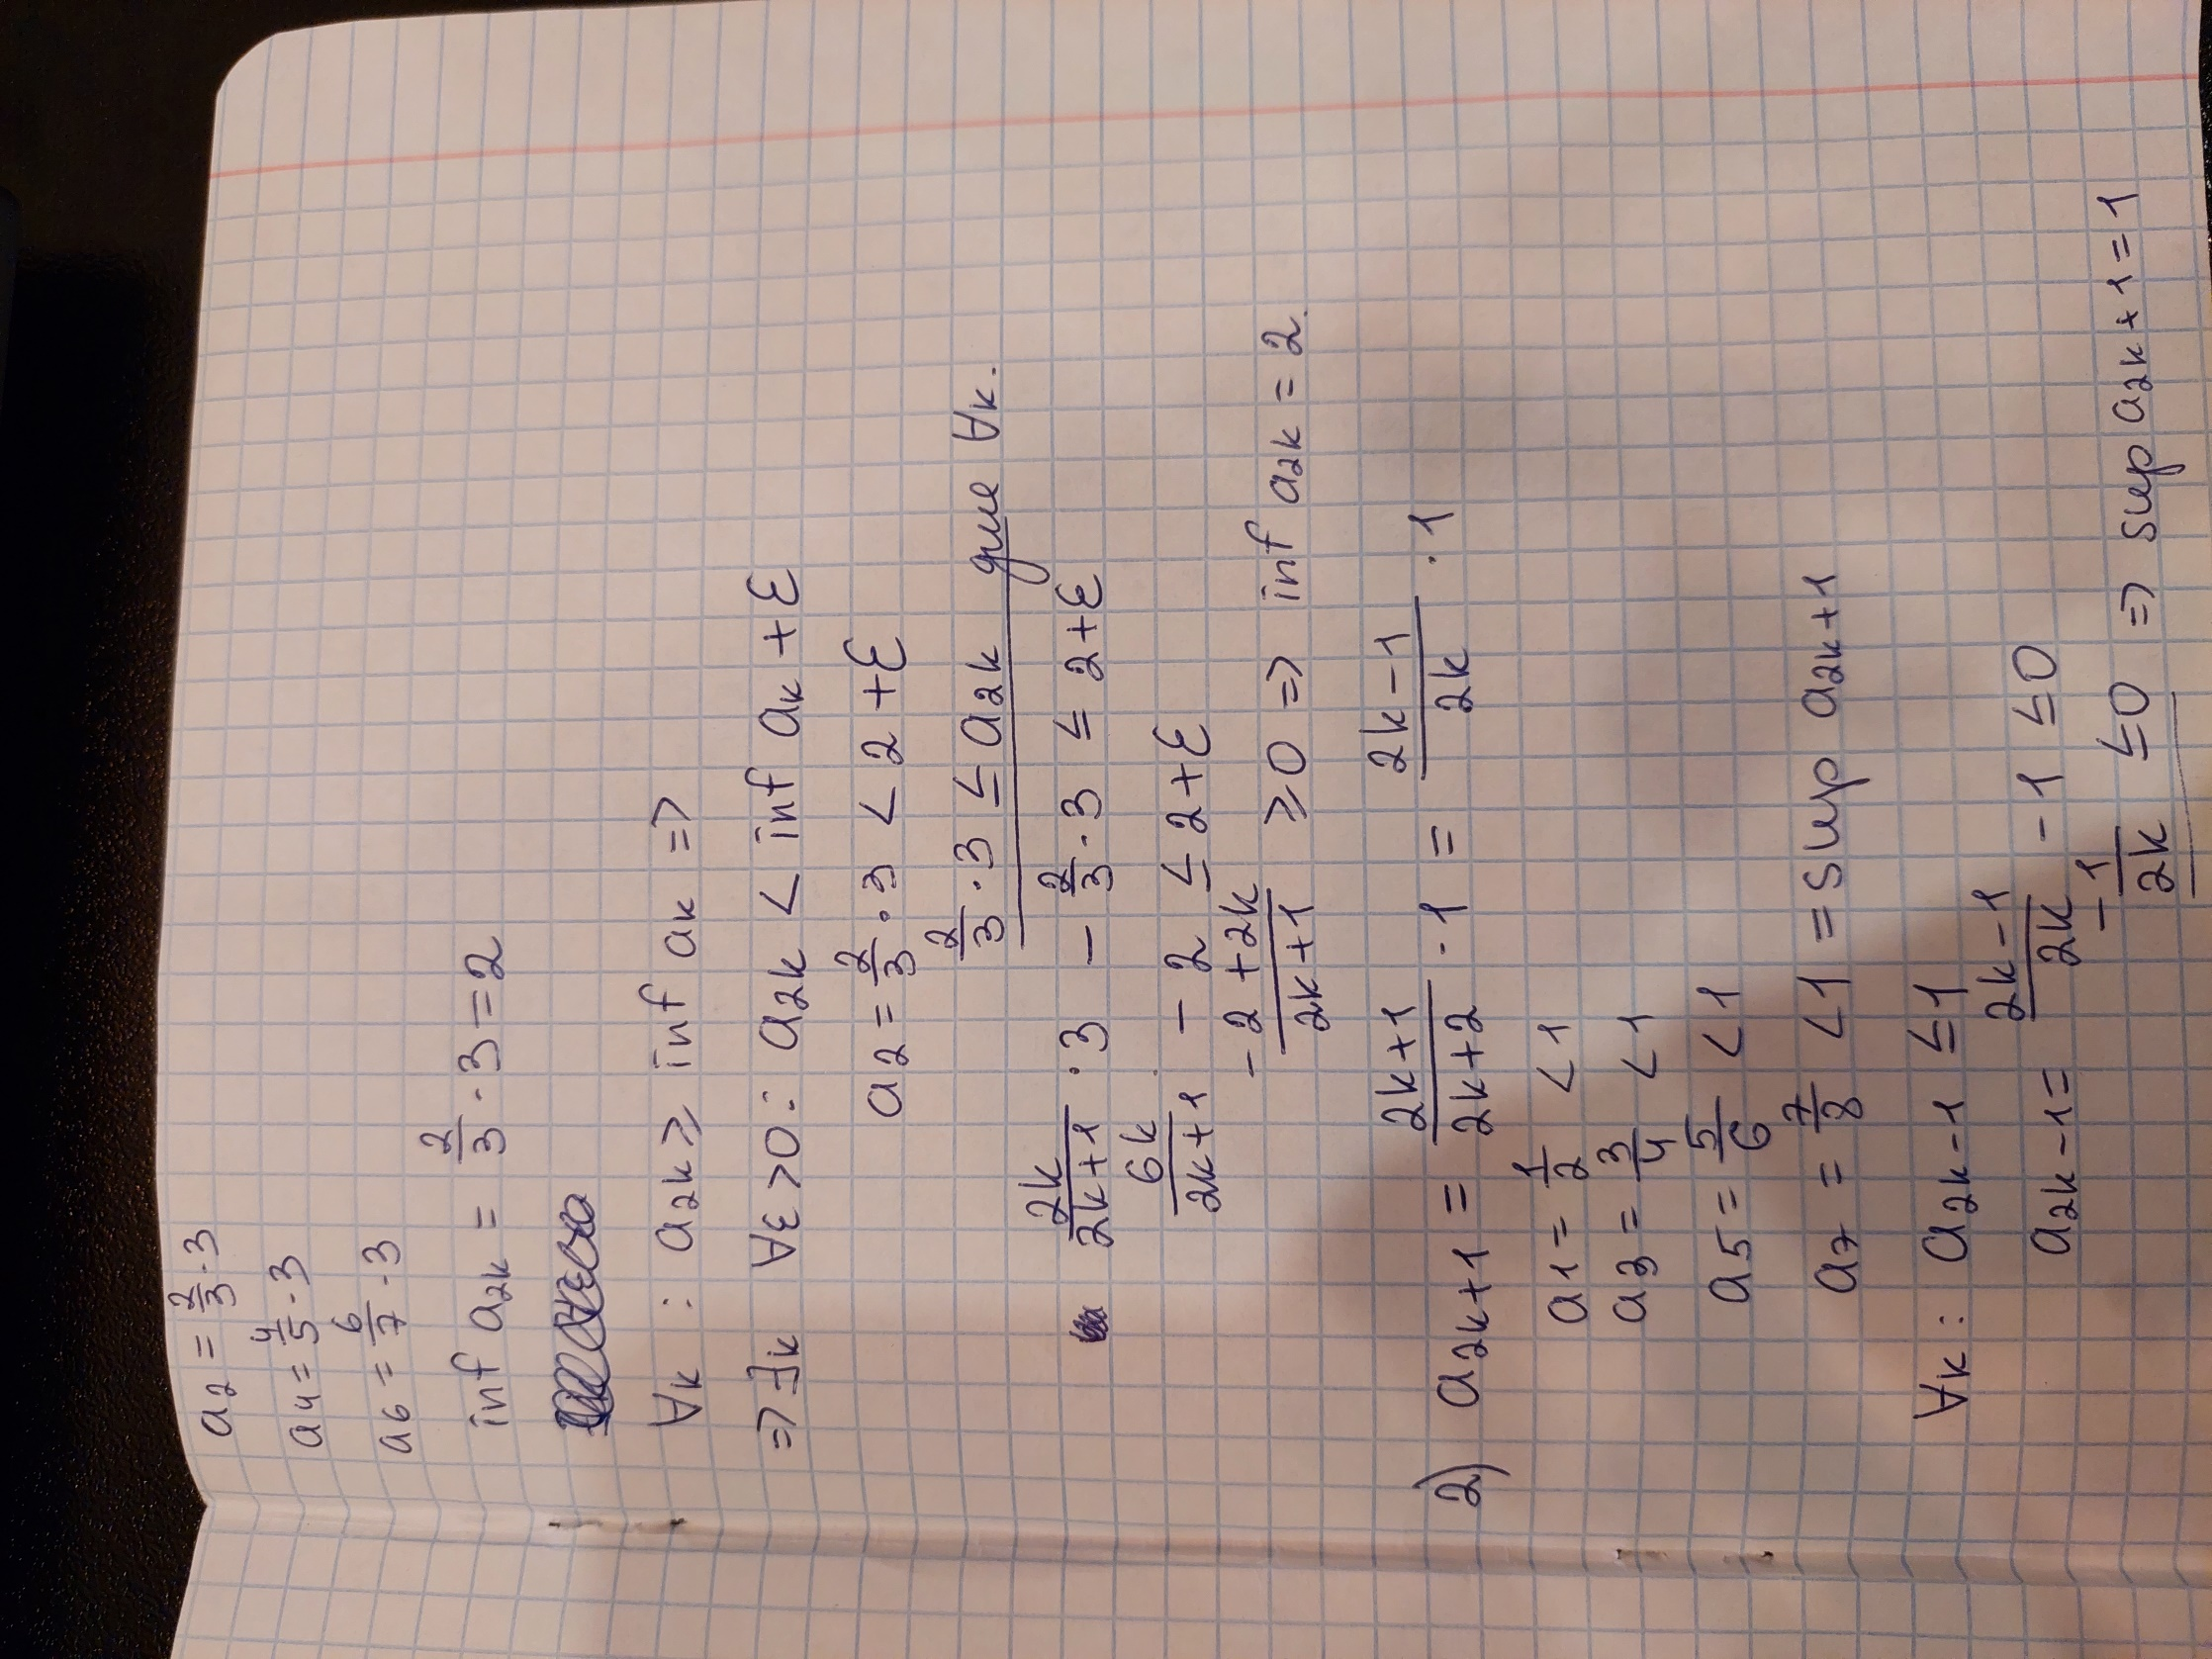 a₂ = 2/3 · 3
a₄ = 4/5 · 3
a₆ = 6/7 · 3
inf a₂ₖ = 2/3 · 3 = 2
∀k : a₂ₖ ≥ inf aₖ =>
=> ∃k ∀ε > 0 : a₂ₖ < inf aₖ + ε
a₂ = 2/3 · 3 < 2 + ε
2/3 · 3 ≤ a₂ₖ для ∀k.
2k/(2k+1) · 3 − 2/3 · 3 ≤ 2 + ε
6k/(2k+1) − 2 ≤ 2 + ε
(−2 + 2k)/(2k+1) ≥ 0 => inf a₂ₖ = 2.
2) a₂ₖ₊₁ = (2k+1)/(2k+2) · 1 = (2k−1)/2k · 1
a₁ = 1/2 < 1
a₃ = 3/4 < 1
a₅ = 5/6 < 1
a₇ = 7/8 < 1 = sup a₂ₖ₊₁
∀k : a₂ₖ₋₁ ≤ 1
a₂ₖ₋₁ = (2k−1)/2k − 1 ≤ 0
−1/2k ≤ 0 => sup a₂ₖ₊₁ = 1